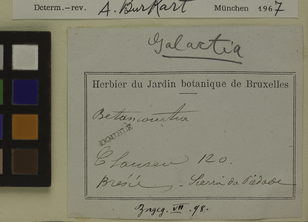 Determ.-rev. A. Burkart München 1967
Galactia
Herbier du Jardin botanique de Bruxelles
Betancourtia
Claussen 120.
Brésil - Sierra da Piedade
VII. 98.